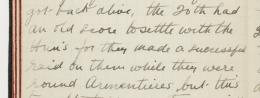 got back alive, the 20th had
an old score to settle with the
Hun's for they made a successful
raid on them while they were
round Armentieres but this